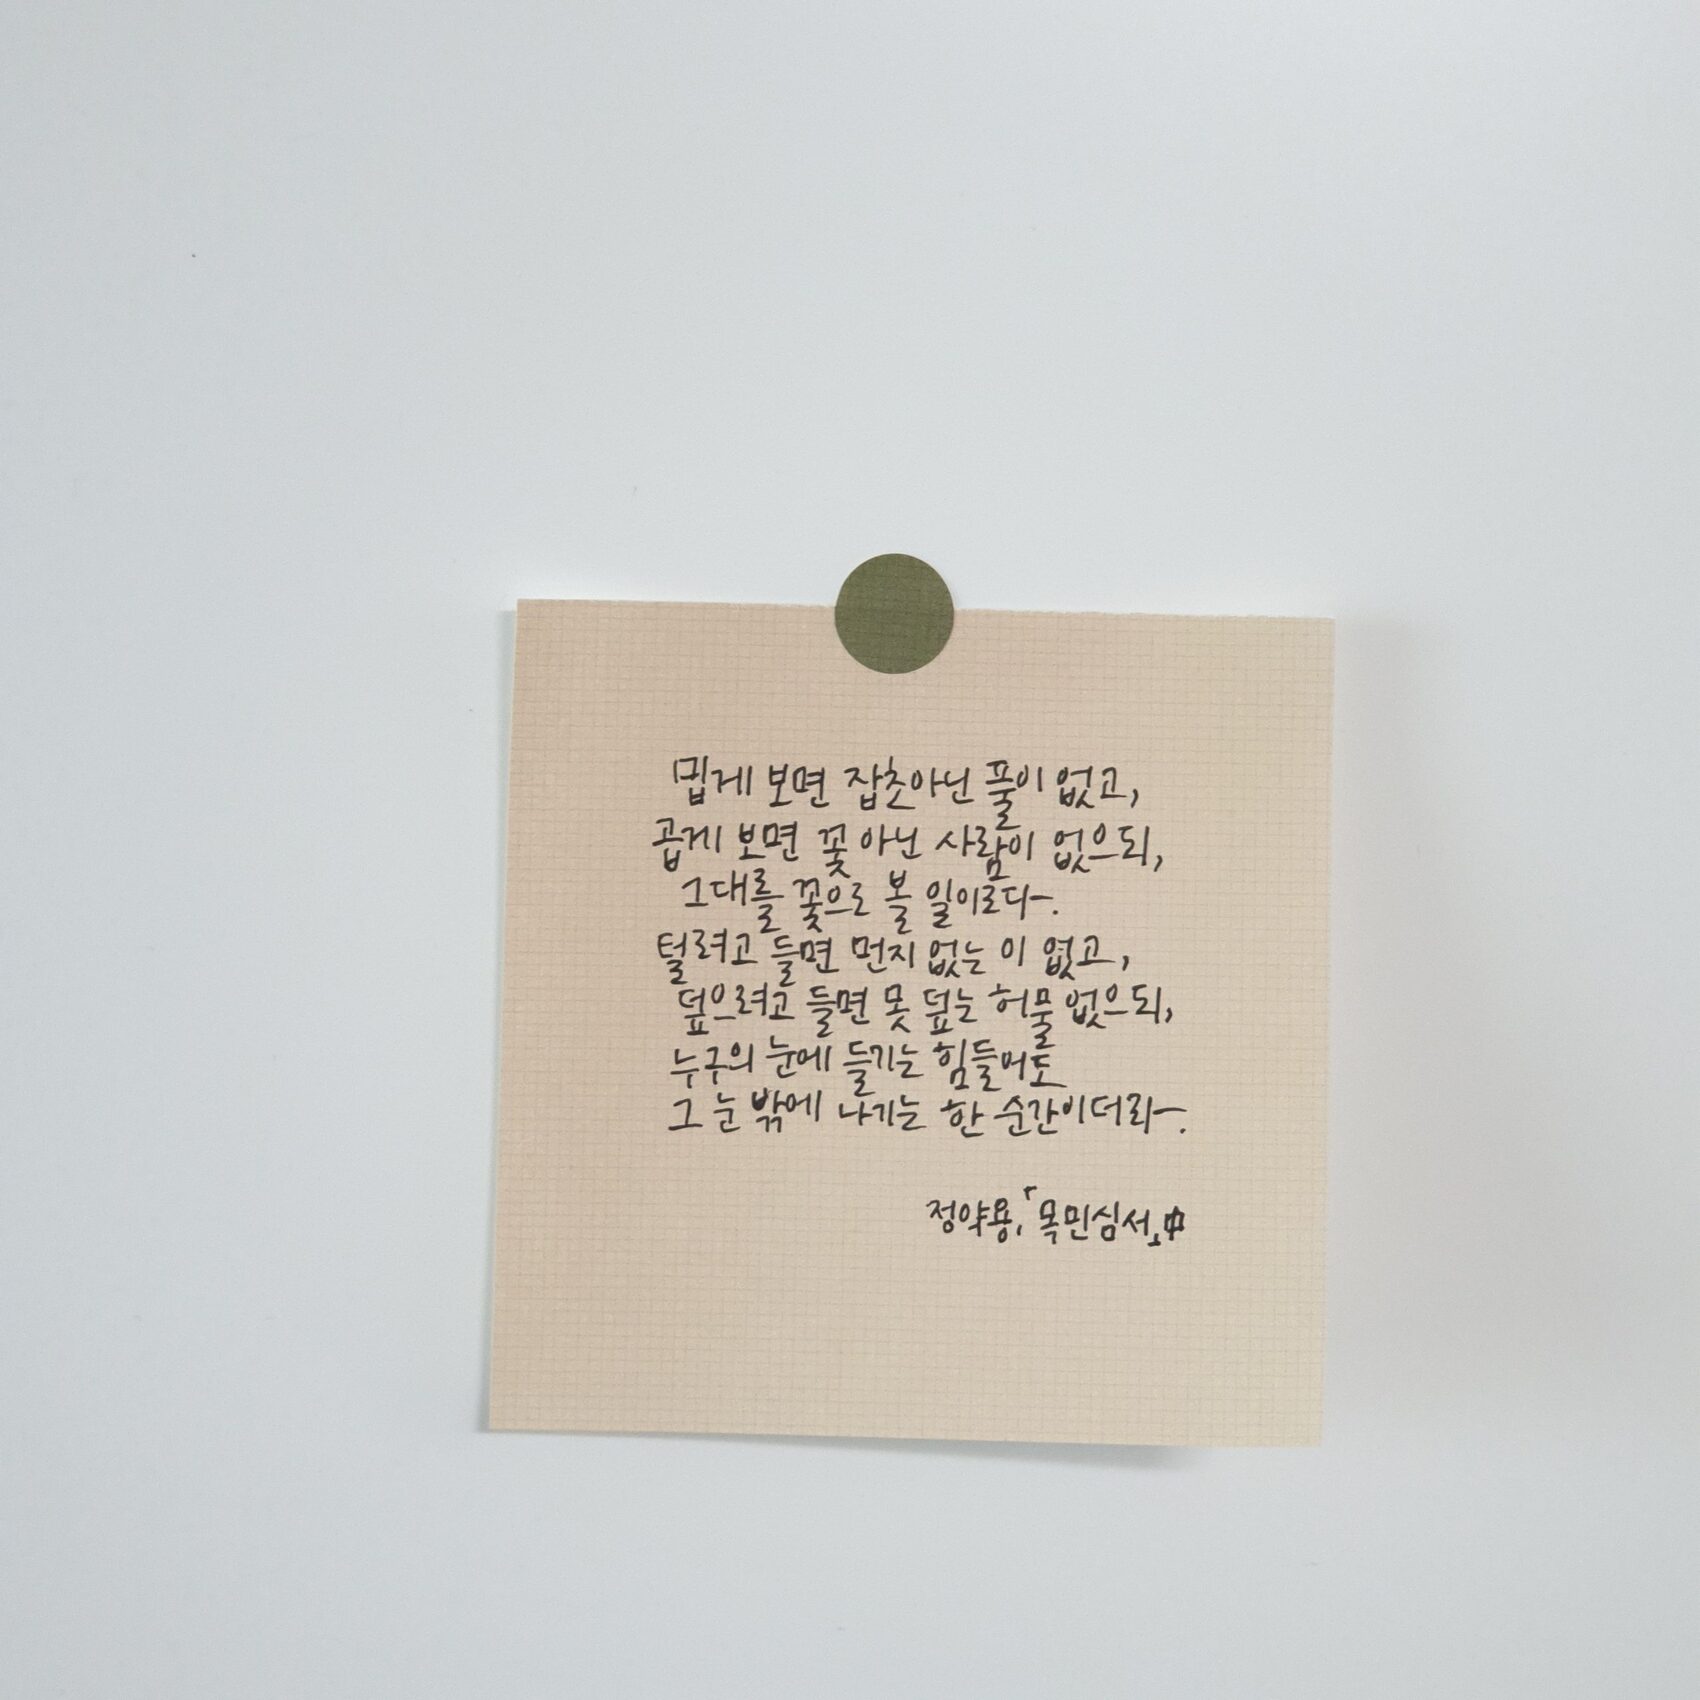 밉게 보면 잡초아닌 풀이 없고,
곱게 보면 꽃 아닌 사람이 없으되,
그대를 꽃으로 볼 일이로다.
털려고 들면 먼지 없는 이 없고,
덮으려고 들면 못 덮는 허물 없으되,
누구의 눈에 들기는 힘들어도
그 눈 밖에 나기는 한 순간이더라.
정약용, 「목민심서」中